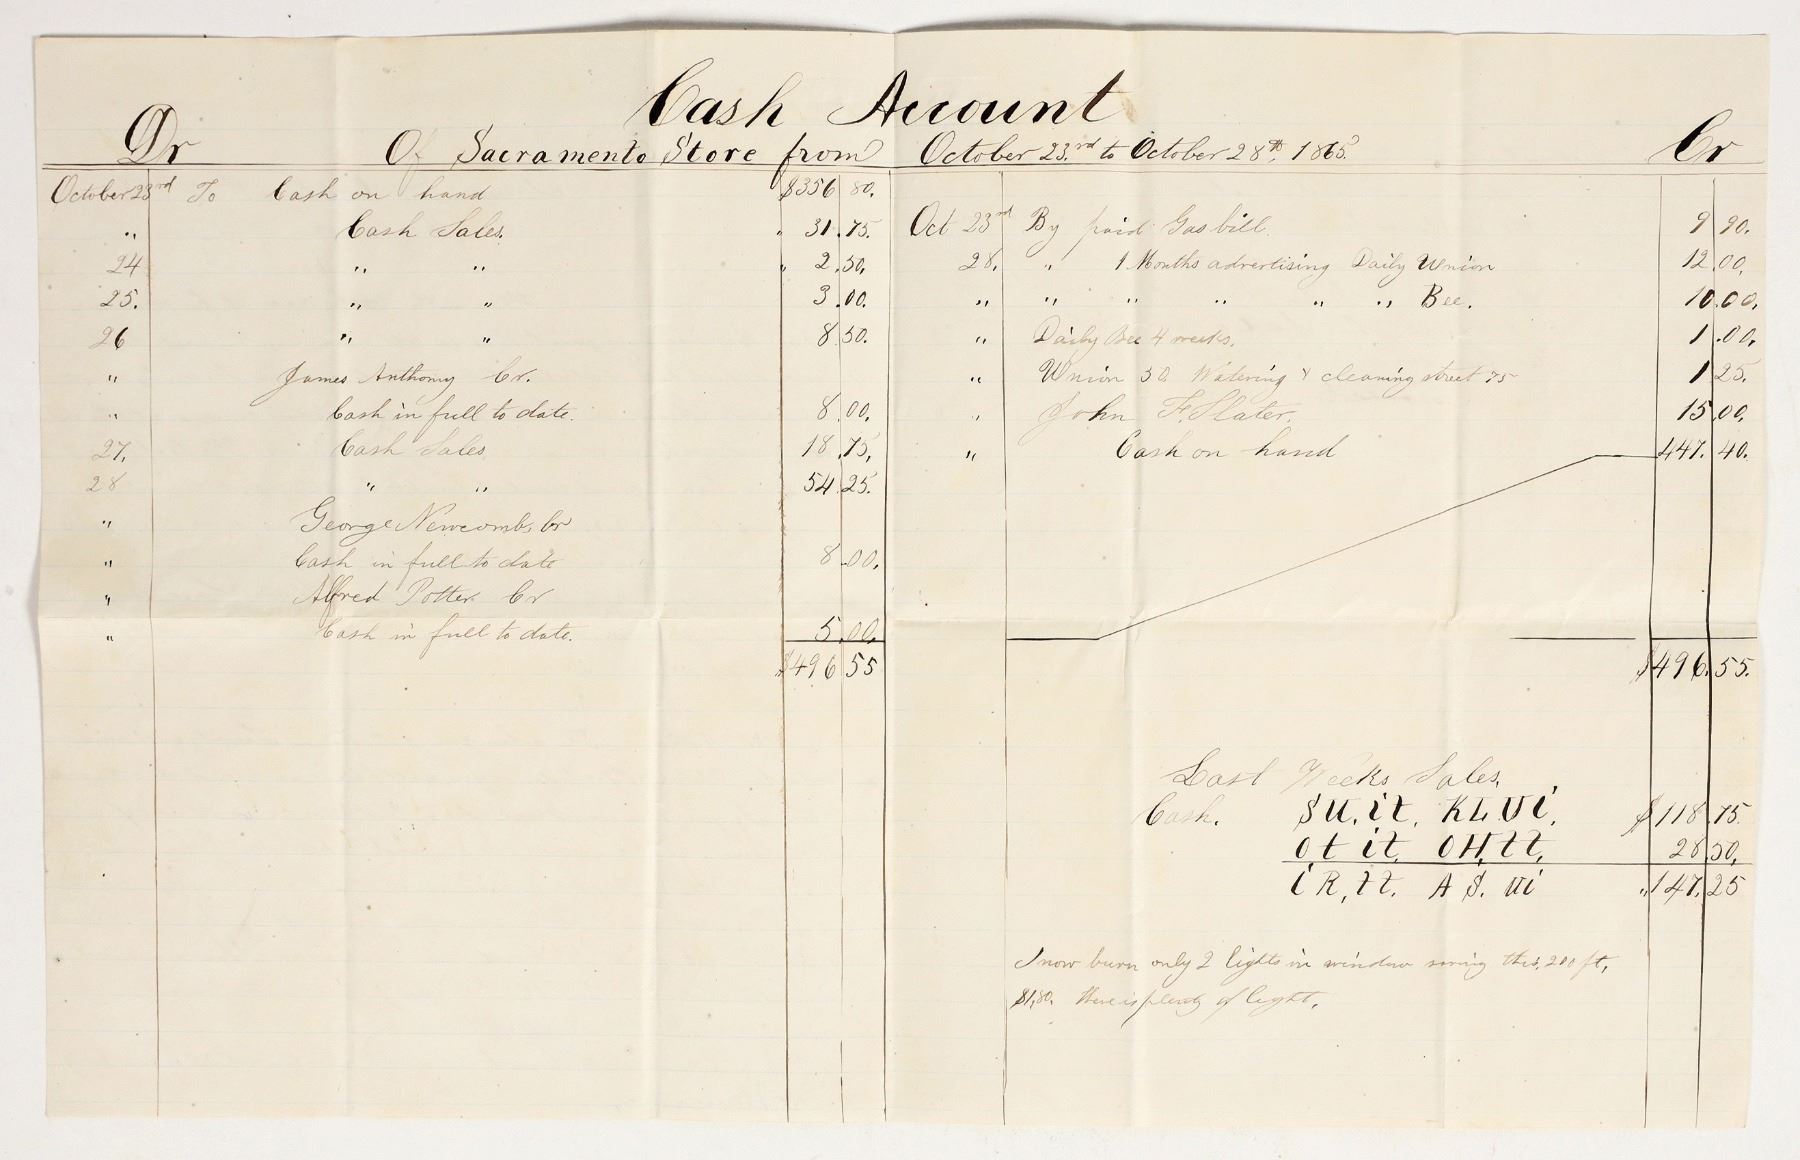 Cash Account
Dr Of Sacramento Store from October 23.rd to October 28th. 1865. Cr
October 23rd To Cash on hand $356 80.
" Cash Sales. " 31.75.
24 " " " 2.50.
25. " " 3.00.
26 " " 8.50.
" James Anthony Cr.
" Cash in full to date. 8.00.
27. Cash Sales 18.75.
28 " " 54.25.
" George Newcomb, Cr
" Cash in full to date 8.00.
" Alfred Potter. Cr
" Cash in full to date. 5.00.
$496 55
Oct 23rd By paid Gas bill. 9 90.
28. " 1 Months advertising Daily Union 12.00.
" " " " " " Bee. 10.00.
" Daily Bee 4 weeks. 1.00.
" Union 50. Watering & cleaning street 75 1 25.
" John F. Slater. 15.00.
" Cash on hand 447.40.
$496.55.
Last Weeks Sales.
Cash. SU.it. KL.Ui. $118.75
Ot it. OH,tt. 28.50.
iR,tt. AS. Ui "147.25
I now burn only 2 lights in window saving this, 200 ft.
$1.80. there is plenty of light.